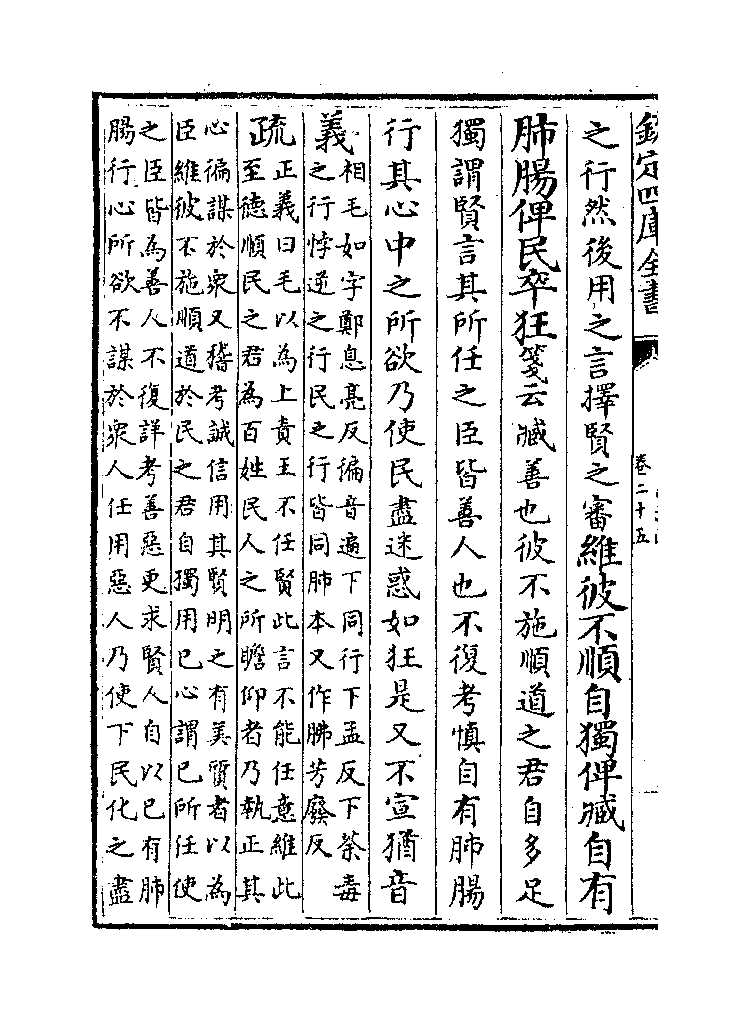 欽定四庫全書
卷二十五
之行然後用之言擇賢之審維彼不順自獨俾臧自有
肺腸俾民卒狂箋云臧善也彼不施順道之君自多足
獨謂賢言其所任之臣皆善人也不復考慎自有肺腸
行其心中之所欲乃使民盡迷惑如狂是又不宣猶音
義相毛如字鄭息亮反徧音遍下同行下孟反下荼毒
之行悖逆之行民之行皆同肺本又作胇芳廢反
疏正義曰毛以為上責王不任賢此言不能任意維此
至德順民之君為百姓民人之所瞻仰者乃執正其
心徧謀於衆又稽考誠信用其賢明之有美質者以為
臣維彼不施順道於民之君自獨用已心謂已所任使
之臣皆為善人不復詳考善惡更求賢人自以已有肺
腸行心所欲不謀於衆人任用惡人乃使下民化之盡